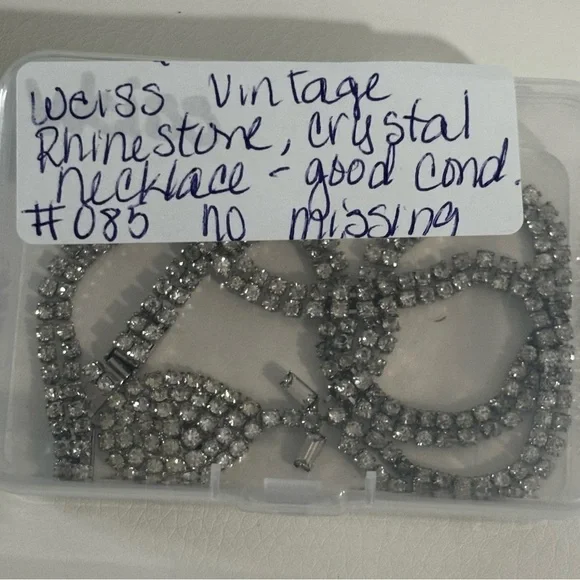 Weiss Vintage
Rhinestone, crystal
necklace - good cond.
#085 no missing